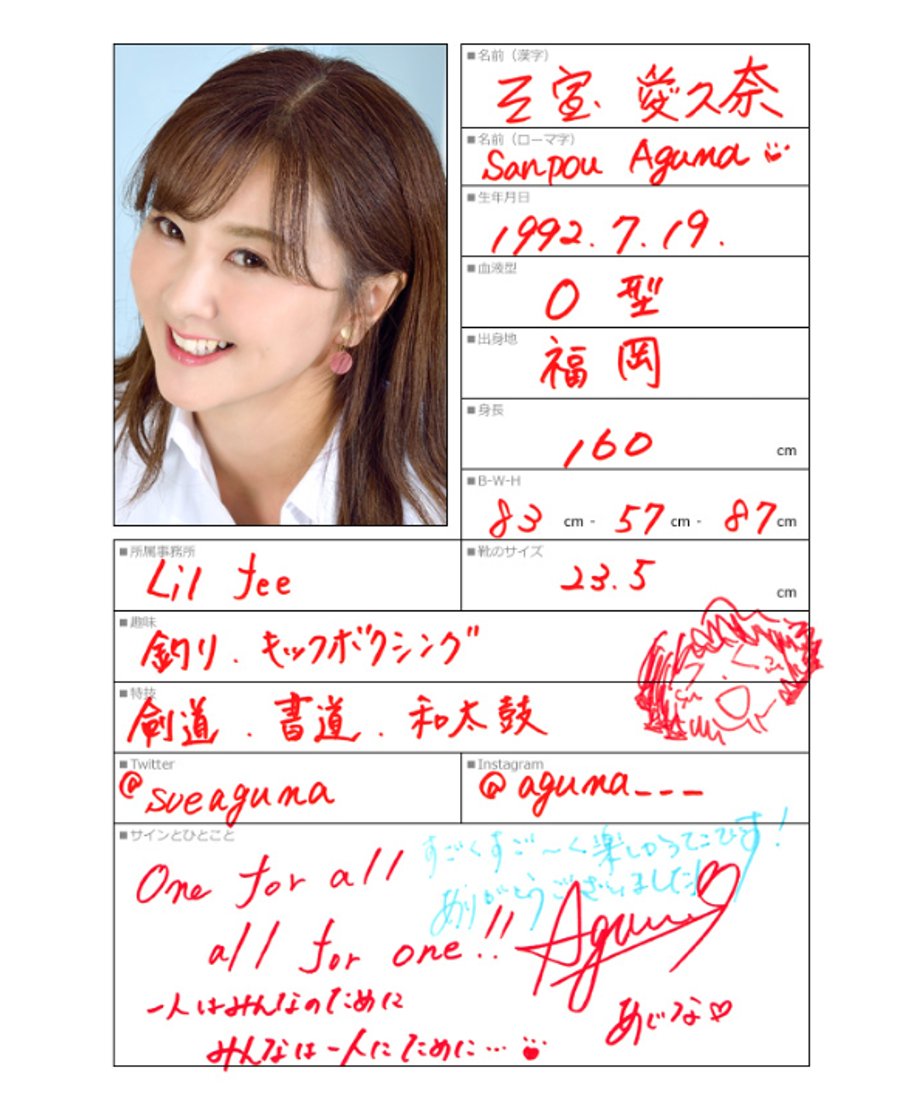 ■名前（漢字）
三宝 愛久奈
■名前（ローマ字）
Sanpou Aguna
■生年月日
1992.7.19.
■血液型
O型
■出身地
福岡
■身長
160 cm
■B-W-H
83 cm - 57 cm - 87 cm
■所属事務所
Lil fee
■靴のサイズ
23.5 cm
■趣味
釣り.キックボクシング
■特技
剣道.書道.和太鼓
■Twitter
@sueaguna
■Instagram
@aguna___
■サインとひとこと
すごくすご〜く楽しかったです!
ありがとうございました!
One for all
all for one!!
Aguna
一人はみんなのために
みんなは一人にために…
あぐな♡